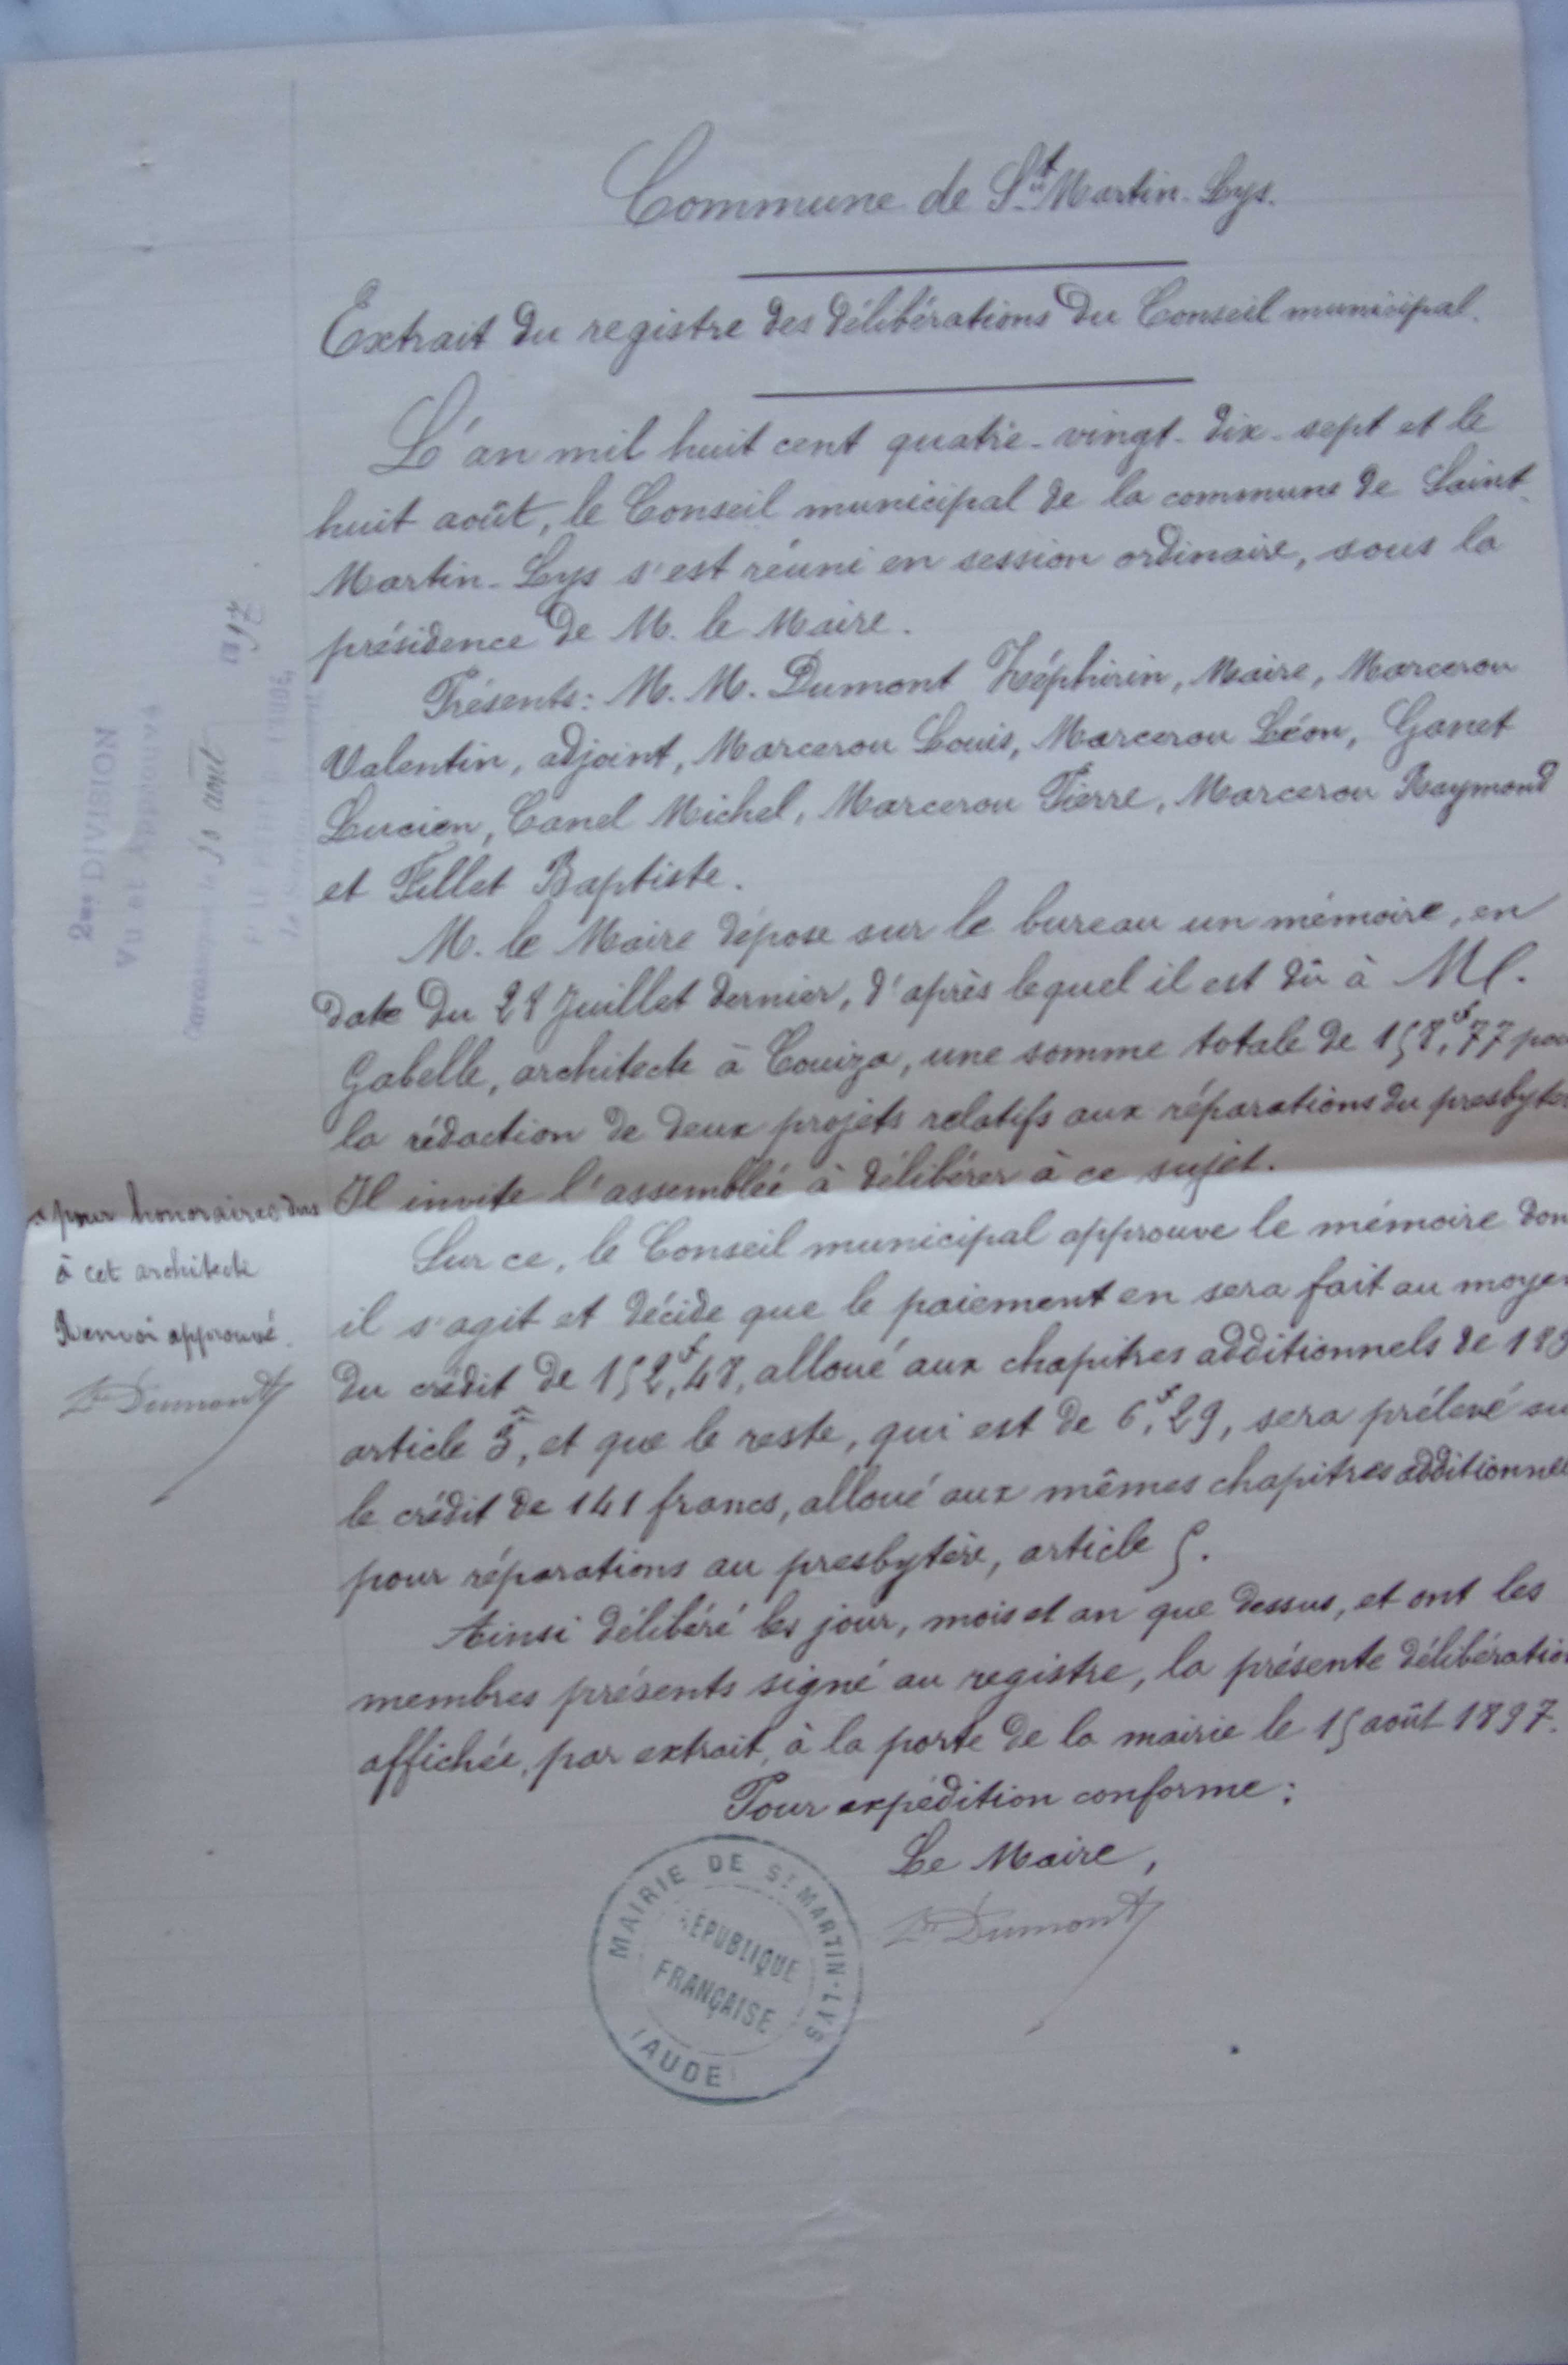 Commune de St Martin-Lys.
Extrait du registre des délibérations du Conseil municipal.
L'an mil huit cent quatre-vingt-dix-sept et le
huit août, le Conseil municipal de la commune de Saint-
Martin-Lys s'est réuni en session ordinaire, sous la
présidence de M. le Maire.
Présents: M. M. Dumont Zéphirin, Maire, Marcerou
Valentin, adjoint, Marcerou Louis, Marcerou Léon, Ganet
Lucien, Canel Michel, Marcerou Pierre, Marcerou Raymond
et Fillet Baptiste.
M. le Maire dépose sur le bureau un mémoire, en
date du 28 Juillet dernier, d'après lequel il est dû à M.
Gabelle, architecte à Couiza, une somme totale de 158f,77 pou
la rédaction de deux projets relatifs aux réparations du presbytèr
Il invite l'assemblée à délibérer à ce sujet.
Sur ce, le Conseil municipal approuve le mémoire don
il s'agit et décide que le paiement en sera fait au moyen
du crédit de 152f,48, alloué aux chapitres additionnels de 189
article 3, et que le reste, qui est de 6f,29, sera prélevé su
le crédit de 141 francs, alloué aux mêmes chapitres additionnel
pour réparations au presbytère, article 5.
Ainsi délibéré les jour, mois et an que dessus, et ont les
membres présents signé au registre, la présente délibération
affichée, par extrait, à la porte de la mairie le 15 août 1897.
Pour expédition conforme:
Le Maire,
Zn Dumont
MAIRIE DE ST MARTIN-LYS
RÉPUBLIQUE
FRANÇAISE
(AUDE)
pour honoraires dus
à cet architecte
Renvoi approuvé.
Zn Dumont
2me DIVISION
Vu et Approuvé
Carcassonne le 30 août 1897